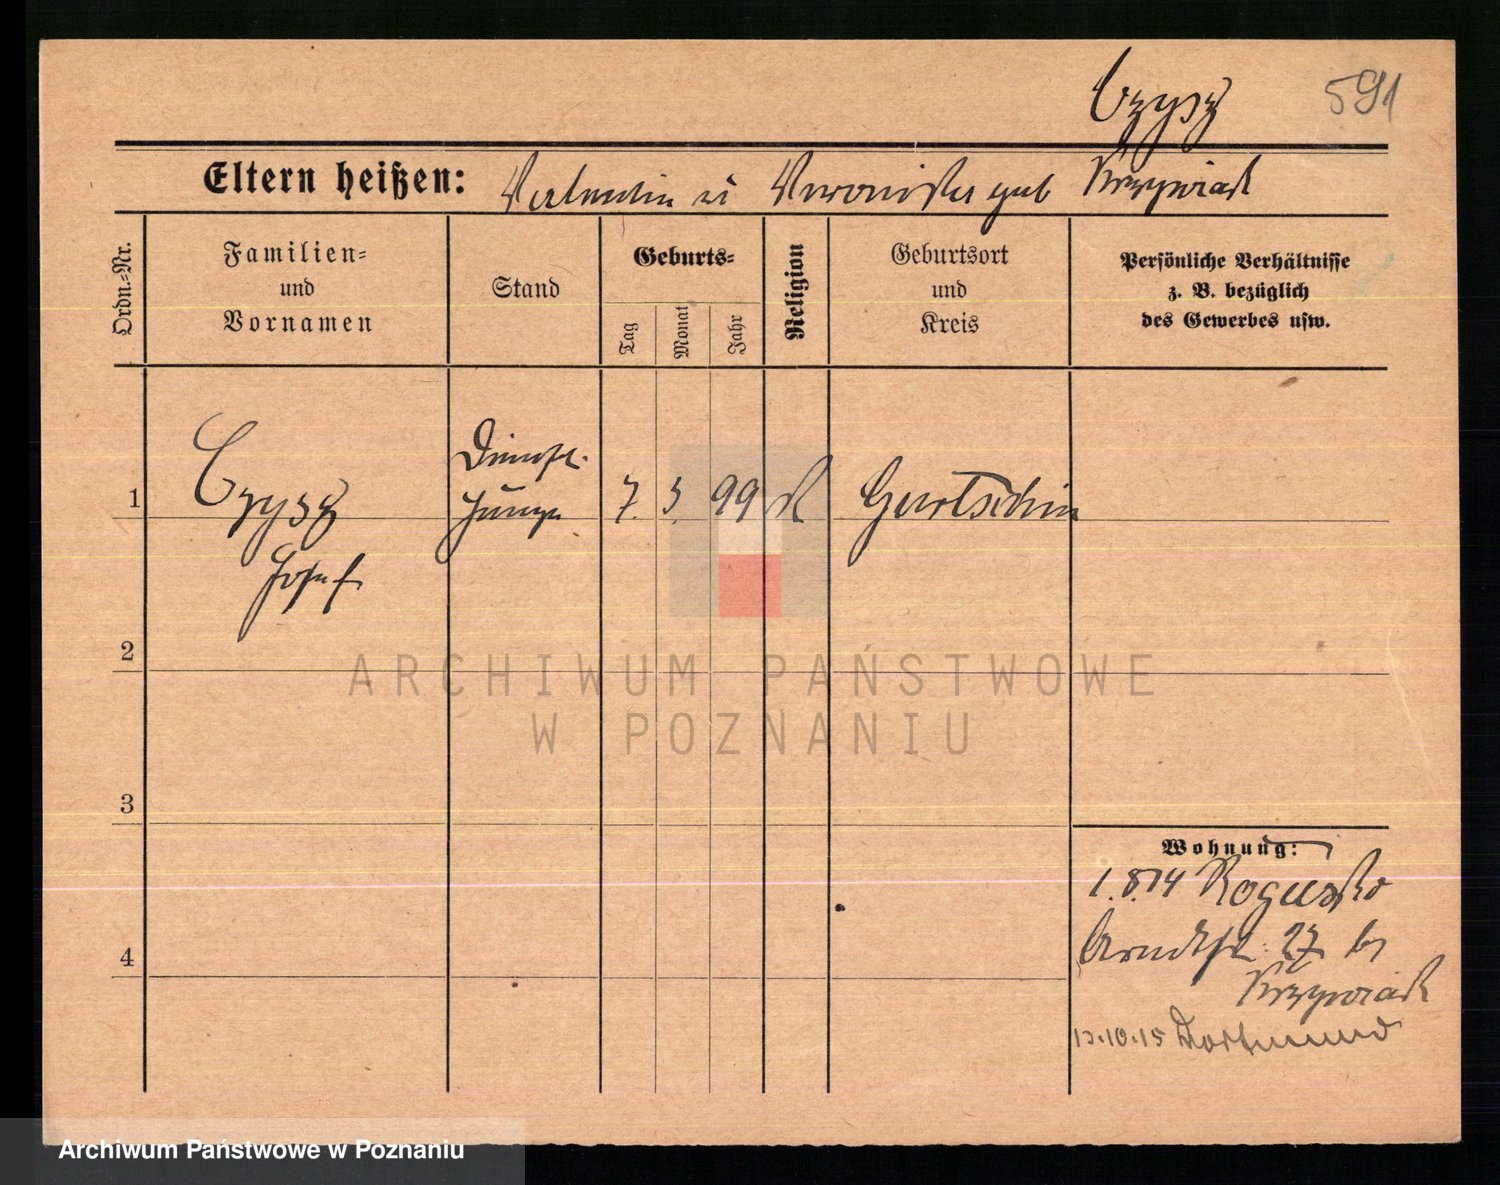 Czysz 591
Eltern heißen: Valentin u Veronika geb Krzywiak
Ordn.-Nr.
Familien-
und
Vornamen
Stand
Geburts-
Tag
Monat
Jahr
Religion
Geburtsort
und
Kreis
Persönliche Verhältnisse
z. B. bezüglich
des Gewerbes usw.
1
Czysz
Josef
Dienst-
junge
7. 3. 99 K Gurtschin
2
ARCHIWUM PAŃSTWOWE
W POZNANIU
3
4
Wohnung:
1.8.14
Arndtstr. 27 b/
Krzywiak
10.15 Dortmund
Archiwum Państwowe w Poznaniu